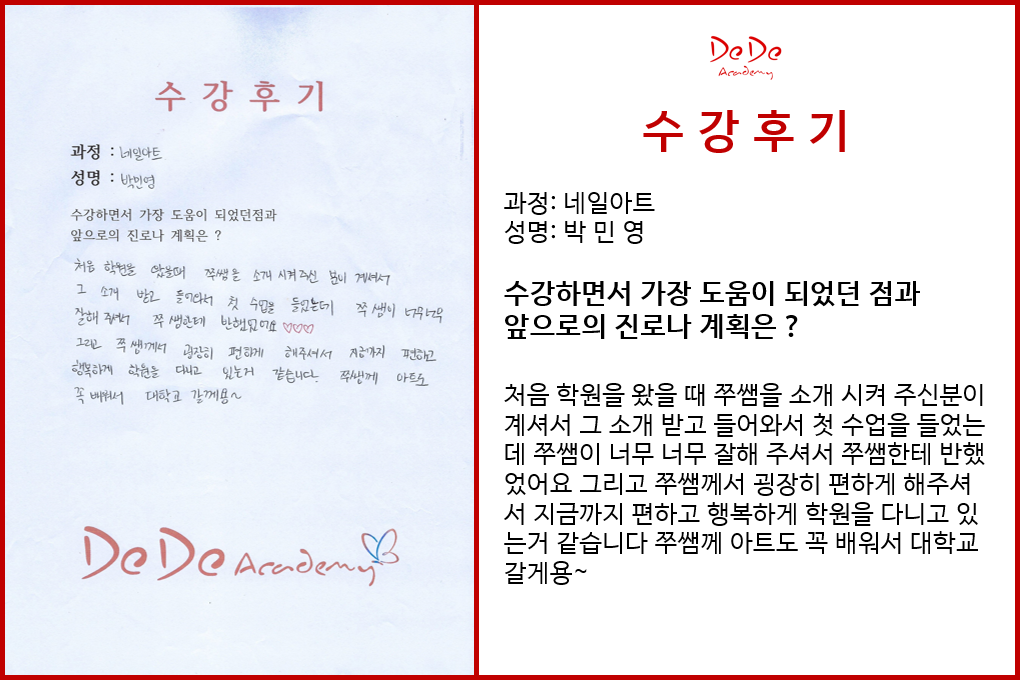 수 강 후 기
과정 : 네일아트
성명 : 박민영
수강하면서 가장 도움이 되었던점과
앞으로의 진로나 계획은 ?
처음 학원을 왔을때 쭈쌤을 소개 시켜주신 분이 계셔서
그 소개 받고 들어와서 첫 수업을 들었는데 쭈쌤이 너무너무
잘해 주셔서 쭈쌤한테 반했었어요 ♡♡♡
그리고 쭈쌤께서 굉장히 편하게 해주셔서 지금까지 편하고
행복하게 학원을 다니고 있는거 같습니다. 쭈쌤께 아트도
꼭 배워서 대학교 갈께용~
DeDe Academy
DeDe
Academy
수 강 후 기
과정: 네일아트
성명: 박 민 영
수강하면서 가장 도움이 되었던 점과
앞으로의 진로나 계획은 ?
처음 학원을 왔을 때 쭈쌤을 소개 시켜 주신분이
계셔서 그 소개 받고 들어와서 첫 수업을 들었는
데 쭈쌤이 너무 너무 잘해 주셔서 쭈쌤한테 반했
었어요 그리고 쭈쌤께서 굉장히 편하게 해주셔
서 지금까지 편하고 행복하게 학원을 다니고 있
는거 같습니다 쭈쌤께 아트도 꼭 배워서 대학교
갈게용~